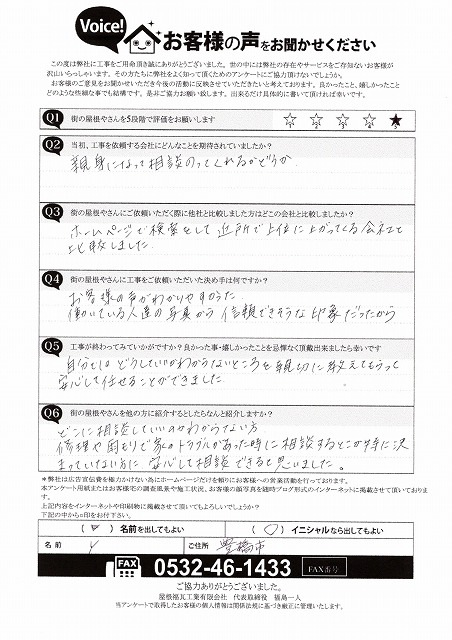 Voice!
お客様の声をお聞かせください
この度は弊社に工事をご用命頂き誠にありがとうございました。世の中には弊社の存在やサービスをご存知ないお客様が
沢山いらっしゃいます。その方たちに弊社をよく知って頂くためのアンケートにご協力頂けないでしょうか。
お客様のご意見をお聞かせいただき今後の活動に反映させていただきたいと考えております。良かったこと、嬉しかったこと
どのような些細な事でも結構です。是非ご協力お願い致します。出来るだけ具体的に書いて頂ければ幸いです。
Q1 街の屋根やさんを5段階で評価をお願いします
1 2 3 4
Q2 当初、工事を依頼する会社にどんなことを期待されていましたか？
親身になって相談のってくれるかどうか
Q3 街の屋根やさんにご依頼いただく際に他社と比較しました方はどこの会社と比較しましたか？
ホームページで検索をして近所で上位に上がってくる会社で
比較しました.
Q4 街の屋根やさんに工事をご依頼いただいた決め手は何ですか？
お客様の声がわかりやすかった
働いている人達の写真から信頼できそうな印象だったから
Q5 工事が終わってみていかがですか？良かった事・嬉しかったことを忌憚なく頂戴出来ましたら幸いです
自分ではどうしていいかわからないところを親切に教えてもらって
安心して任せることができました.
Q6 街の屋根やさんを他の方に紹介するとしたらなんと紹介しますか？
どこに相談していいのかわからない方
修理や雨もりで家のトラブルがあった時に相談するとこが特に決
まっていない方に安心して相談できると思いました。
＊弊社は広告宣伝費を極力かけない為にホームページだけを頼りにお客様への営業活動を行っております。
本アンケート用紙またはお客様宅の調査風景や施工状況、お客様の顔写真を随時ブログ形式のインターネットに掲載させて頂いております。
上記内容をインターネットや印刷物に掲載させて頂いてもよろしいでしょうか？
下記の中から○印をお付下さい。
( ) 名前を出してもよい
(○) イニシャルなら出してもよい
名前 Y ご住所 豊橋市
FAX 0532-46-1433 FAX番号
ご協力ありがとうございました。
屋根福瓦工業有限会社 代表取締役 福島一人
当アンケートで取得したお客様の個人情報は関係法規に基づき厳正に管理いたします。